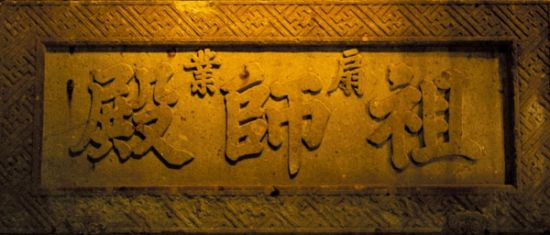 扇業
祖師殿